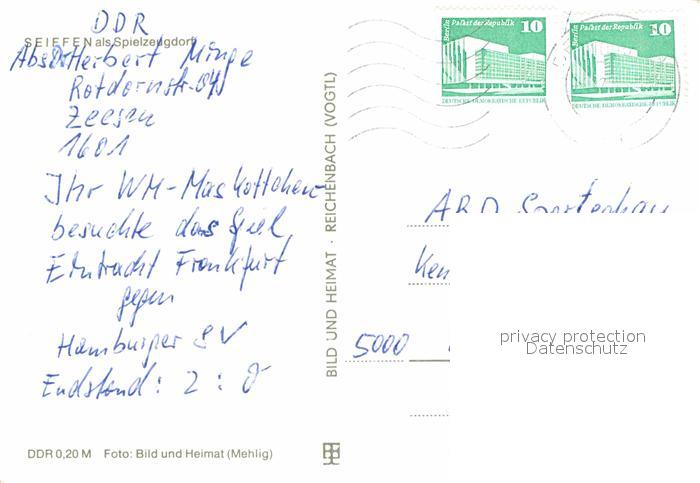 DDR
SEIFFEN als Spielzeugdorf
Abs. Herbert Minge
Rotdornstr.
Zeesen
1601
Ihr WM-Maskottchen
besuchte das Spiel
Eintracht Frankfurt
gegen
Hamburger SV
Endstand: 2:0
DDR 0,20 M Foto: Bild und Heimat (Mehlig)
BILD UND HEIMAT · REICHENBACH (VOGTL)
Berlin Palast der Republik 10
DEUTSCHE DEMOKRATISCHE REPUBLIK
Berlin Palast der Republik 10
DEUTSCHE DEMOKRATISCHE REPUBLIK
ARD Sportschau
5000
privacy protection
Datenschutz